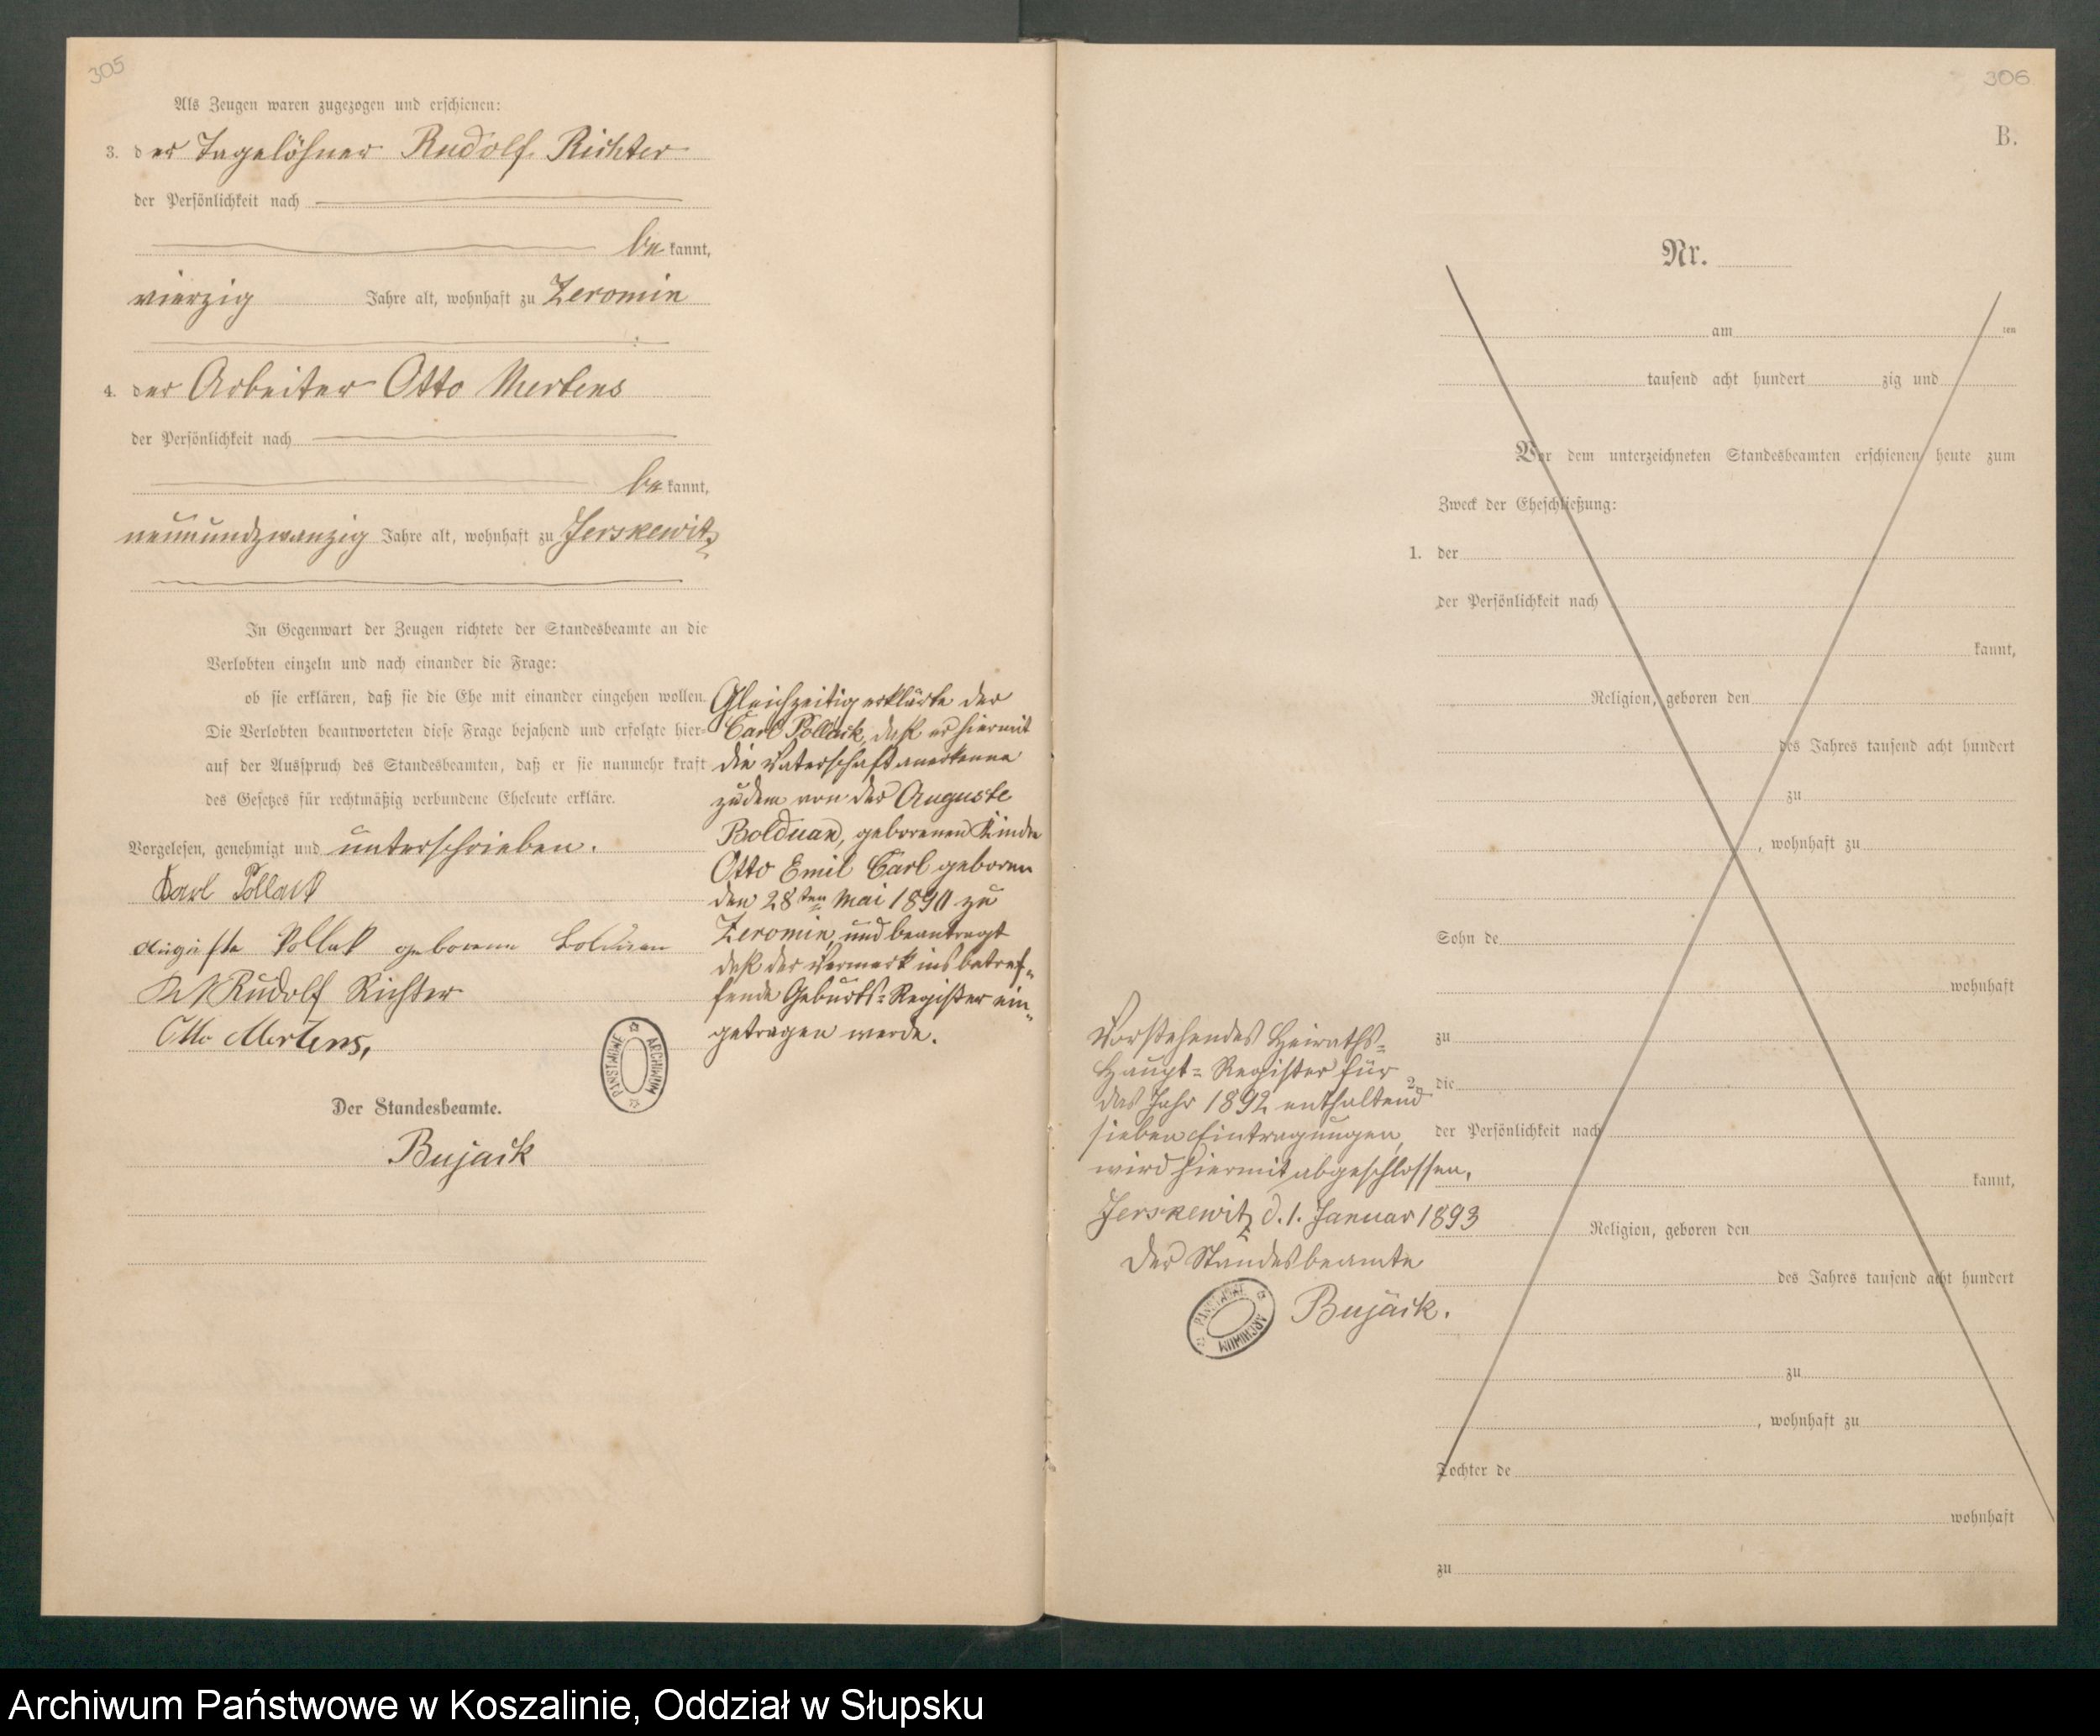 305
Als Zeugen waren zugezogen und erschienen:
3. der Tagelöhner Rudolf Richter
der Persönlichkeit nach
be kannt,
vierzig Jahre alt, wohnhaft zu Zeromin
4. der Arbeiter Otto Mertens
der Persönlichkeit nach
be kannt,
neunundzwanzig Jahre alt, wohnhaft zu Jerskewitz
In Gegenwart der Zeugen richtete der Standesbeamte an die
Verlobten einzeln und nach einander die Frage:
ob sie erklären, daß sie die Ehe mit einander eingehen wollen.
Die Verlobten beantworteten diese Frage bejahend und erfolgte hier-
auf der Ausspruch des Standesbeamten, daß er sie nunmehr kraft
des Gesetzes für rechtmäßig verbundene Eheleute erkläre.
Vorgelesen, genehmigt und unterschrieben.
Karl Pollack
Auguste Pollak geborene Bolduan
Rudolf Richter
Otto Mertens,
Der Standesbeamte.
Bujack
Gleichzeitig erklärte der
Carl Pollack, daß er hiermit
die Vaterschaft anerkenne
zu dem von der Auguste
Bolduan, geborenen Kinde
Otto Emil Carl geboren
den 28ten Mai 1890 zu
Zeromin, und beantragt
daß der Vermerk ins betref-
fende Geburts-Register ein-
getragen werde.
PAŃSTWOWE ARCHIWUM
306
B.
Nr.
am ten
tausend acht hundert zig und
Vor dem unterzeichneten Standesbeamten erschienen heute zum
Zweck der Eheschließung:
1. der
der Persönlichkeit nach
kannt,
Religion, geboren den
des Jahres tausend acht hundert
zu
, wohnhaft zu
Sohn de
wohnhaft
zu
2. die
der Persönlichkeit nach
kannt,
Religion, geboren den
des Jahres tausend acht hundert
zu
, wohnhaft zu
Tochter de
wohnhaft
zu
Vorstehendes Heiraths-
Haupt-Register für
das Jahr 1892 enthaltend
sieben Eintragungen,
wird hiermit abgeschlossen.
Jerskewitz d. 1. Januar 1893
Der Standesbeamte
Bujack.
PAŃSTWOWE ARCHIWUM
Archiwum Państwowe w Koszalinie, Oddział w Słupsku